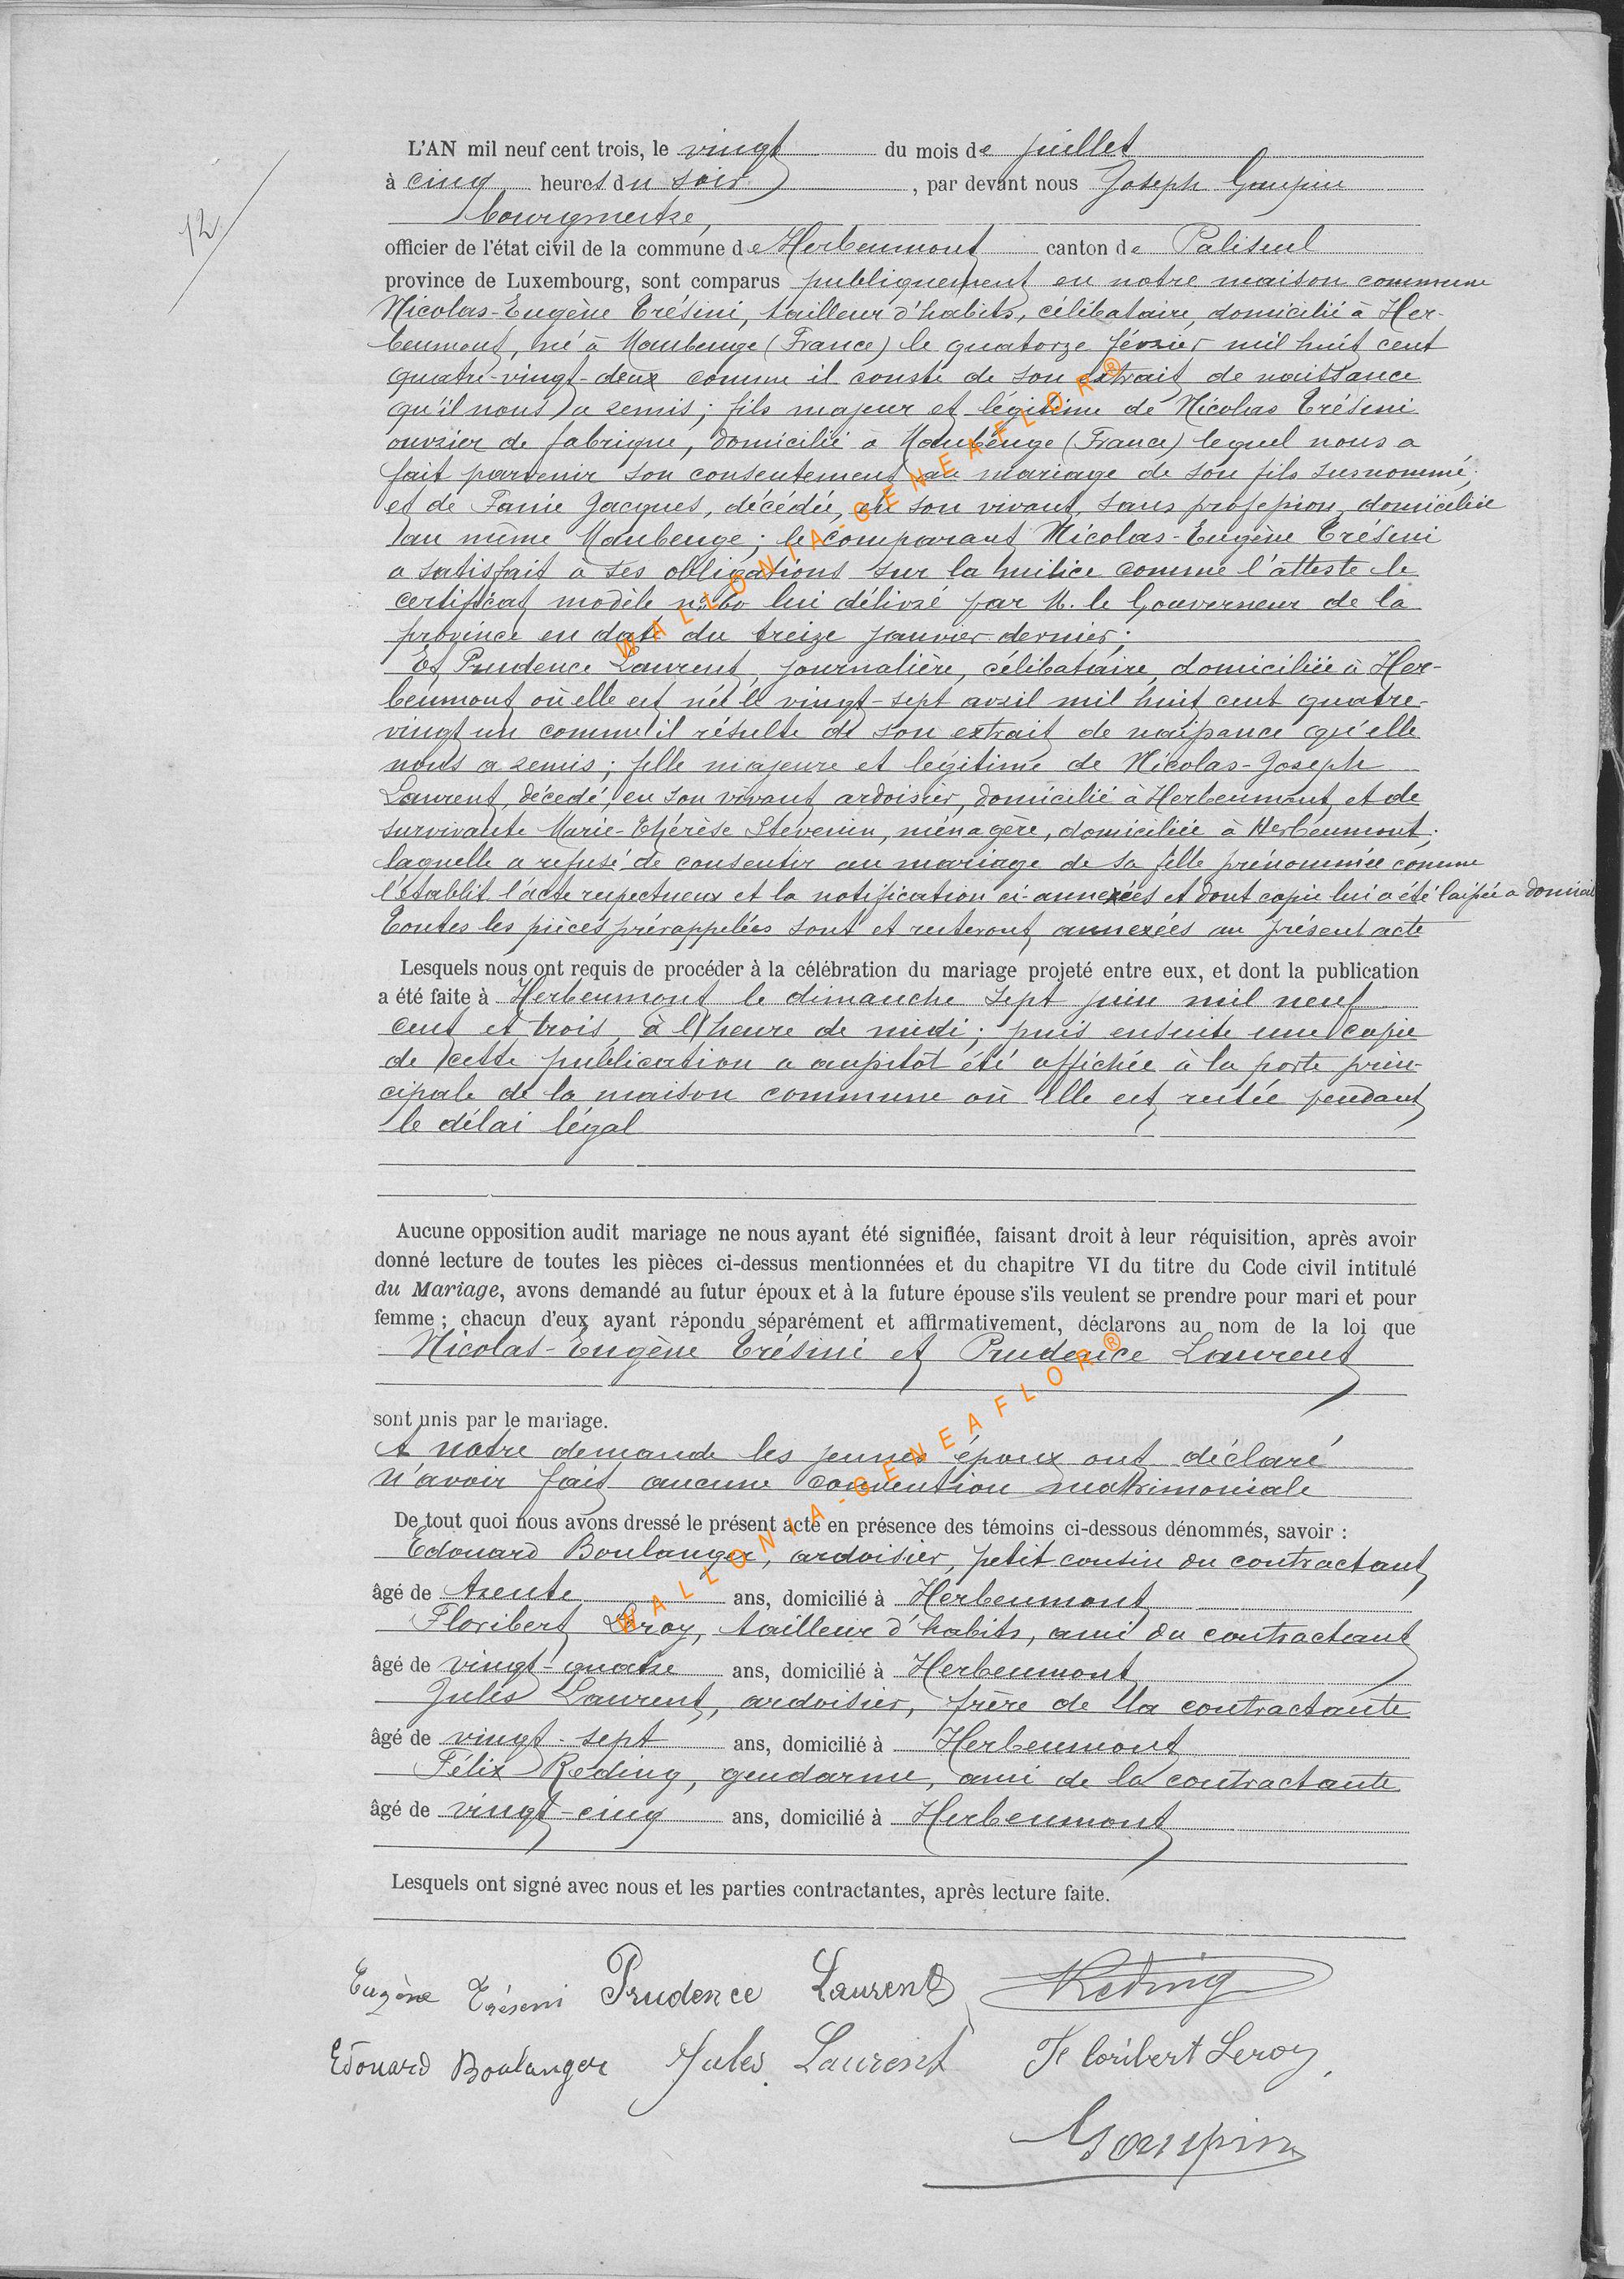 12
L'AN mil neuf cent trois, le vingt du mois de juillet
à cinq heures du soir, par devant nous Joseph Goupin
bourgmestre,
officier de l'état civil de la commune de Herbeumont canton de Paliseul
province de Luxembourg, sont comparus publiquement en notre maison commune
Nicolas-Eugène Trésini, tailleur d'habits, célibataire, domicilié à Her-
beumont, né à Maubeuge (France) le quatorze février mil huit cent
quatre-vingt-deux comme il conste de son extrait de naissance
qu'il nous a remis; fils majeur et légitime de Nicolas Trésini
ouvrier de fabrique, domicilié à Maubeuge (France) lequel nous a
fait parvenir son consentement au mariage de son fils susnommé;
et de Fanie Jacques, décédée, en son vivant, sans profession, domiciliée
au même Maubeuge; le comparant Nicolas-Eugène Trésini
a satisfait à ses obligations sur la milice comme l'atteste le
certificat modèle n° 60 lui délivré par M. le Gouverneur de la
province en date du treize janvier dernier;
Et Prudence Laurent, journalière, célibataire, domiciliée à Her-
beumont où elle est née le vingt-sept avril mil huit cent quatre-
vingt un comme il résulte de son extrait de naissance qu'elle
nous a remis; fille majeure et légitime de Nicolas-Joseph
Laurent, décédé, en son vivant ardoisier, domicilié à Herbeumont, et de
survivante Marie-Thérèse Stevenin, ménagère, domiciliée à Herbeumont;
laquelle a refusé de consentir au mariage de sa fille prénommée comme
l'établit l'acte respectueux et la notification ci-annexées et dont copie lui a été laissée a domicil
Toutes les pièces prérappelées sont et resteront annexées au présent acte
Lesquels nous ont requis de procéder à la célébration du mariage projeté entre eux, et dont la publication
a été faite à Herbeumont le dimanche sept juin mil neuf
cent et trois, à l'heure de midi; puis ensuite une copie
de cette publication a aussitôt été affichée à la porte prin-
cipale de la maison commune où elle est restée pendant
le délai légal
Aucune opposition audit mariage ne nous ayant été signifiée, faisant droit à leur réquisition, après avoir
donné lecture de toutes les pièces ci-dessus mentionnées et du chapitre VI du titre du Code civil intitulé
du Mariage, avons demandé au futur époux et à la future épouse s'ils veulent se prendre pour mari et pour
femme ; chacun d'eux ayant répondu séparément et affirmativement, déclarons au nom de la loi que
Nicolas-Eugène Trésini et Prudence Laurent
sont unis par le mariage.
A notre demande les jeunes époux ont déclaré
n'avoir fait aucune convention matrimoniale
De tout quoi nous avons dressé le présent acte en présence des témoins ci-dessous dénommés, savoir :
Edouard Boulanger, ardoisier, petit-cousin du contractant
âgé de trente ans, domicilié à Herbeumont
Floribert Leroy, tailleur d'habits, ami du contractant
âgé de vingt-quatre ans, domicilié à Herbeumont
Jules Laurent, ardoisier, frère de la contractante
âgé de vingt-sept ans, domicilié à Herbeumont
Félix Reding, gendarme, ami de la contractante
âgé de vingt-cinq ans, domicilié à Herbeumont
Lesquels ont signé avec nous et les parties contractantes, après lecture faite.
Eugène Trésini Prudence Laurent Reding
Edouard Boulanger Jules Laurent Floribert Leroy
Goupin
WALLONIA-GENEAFLOR®
WALLONIA-GENEAFLOR®